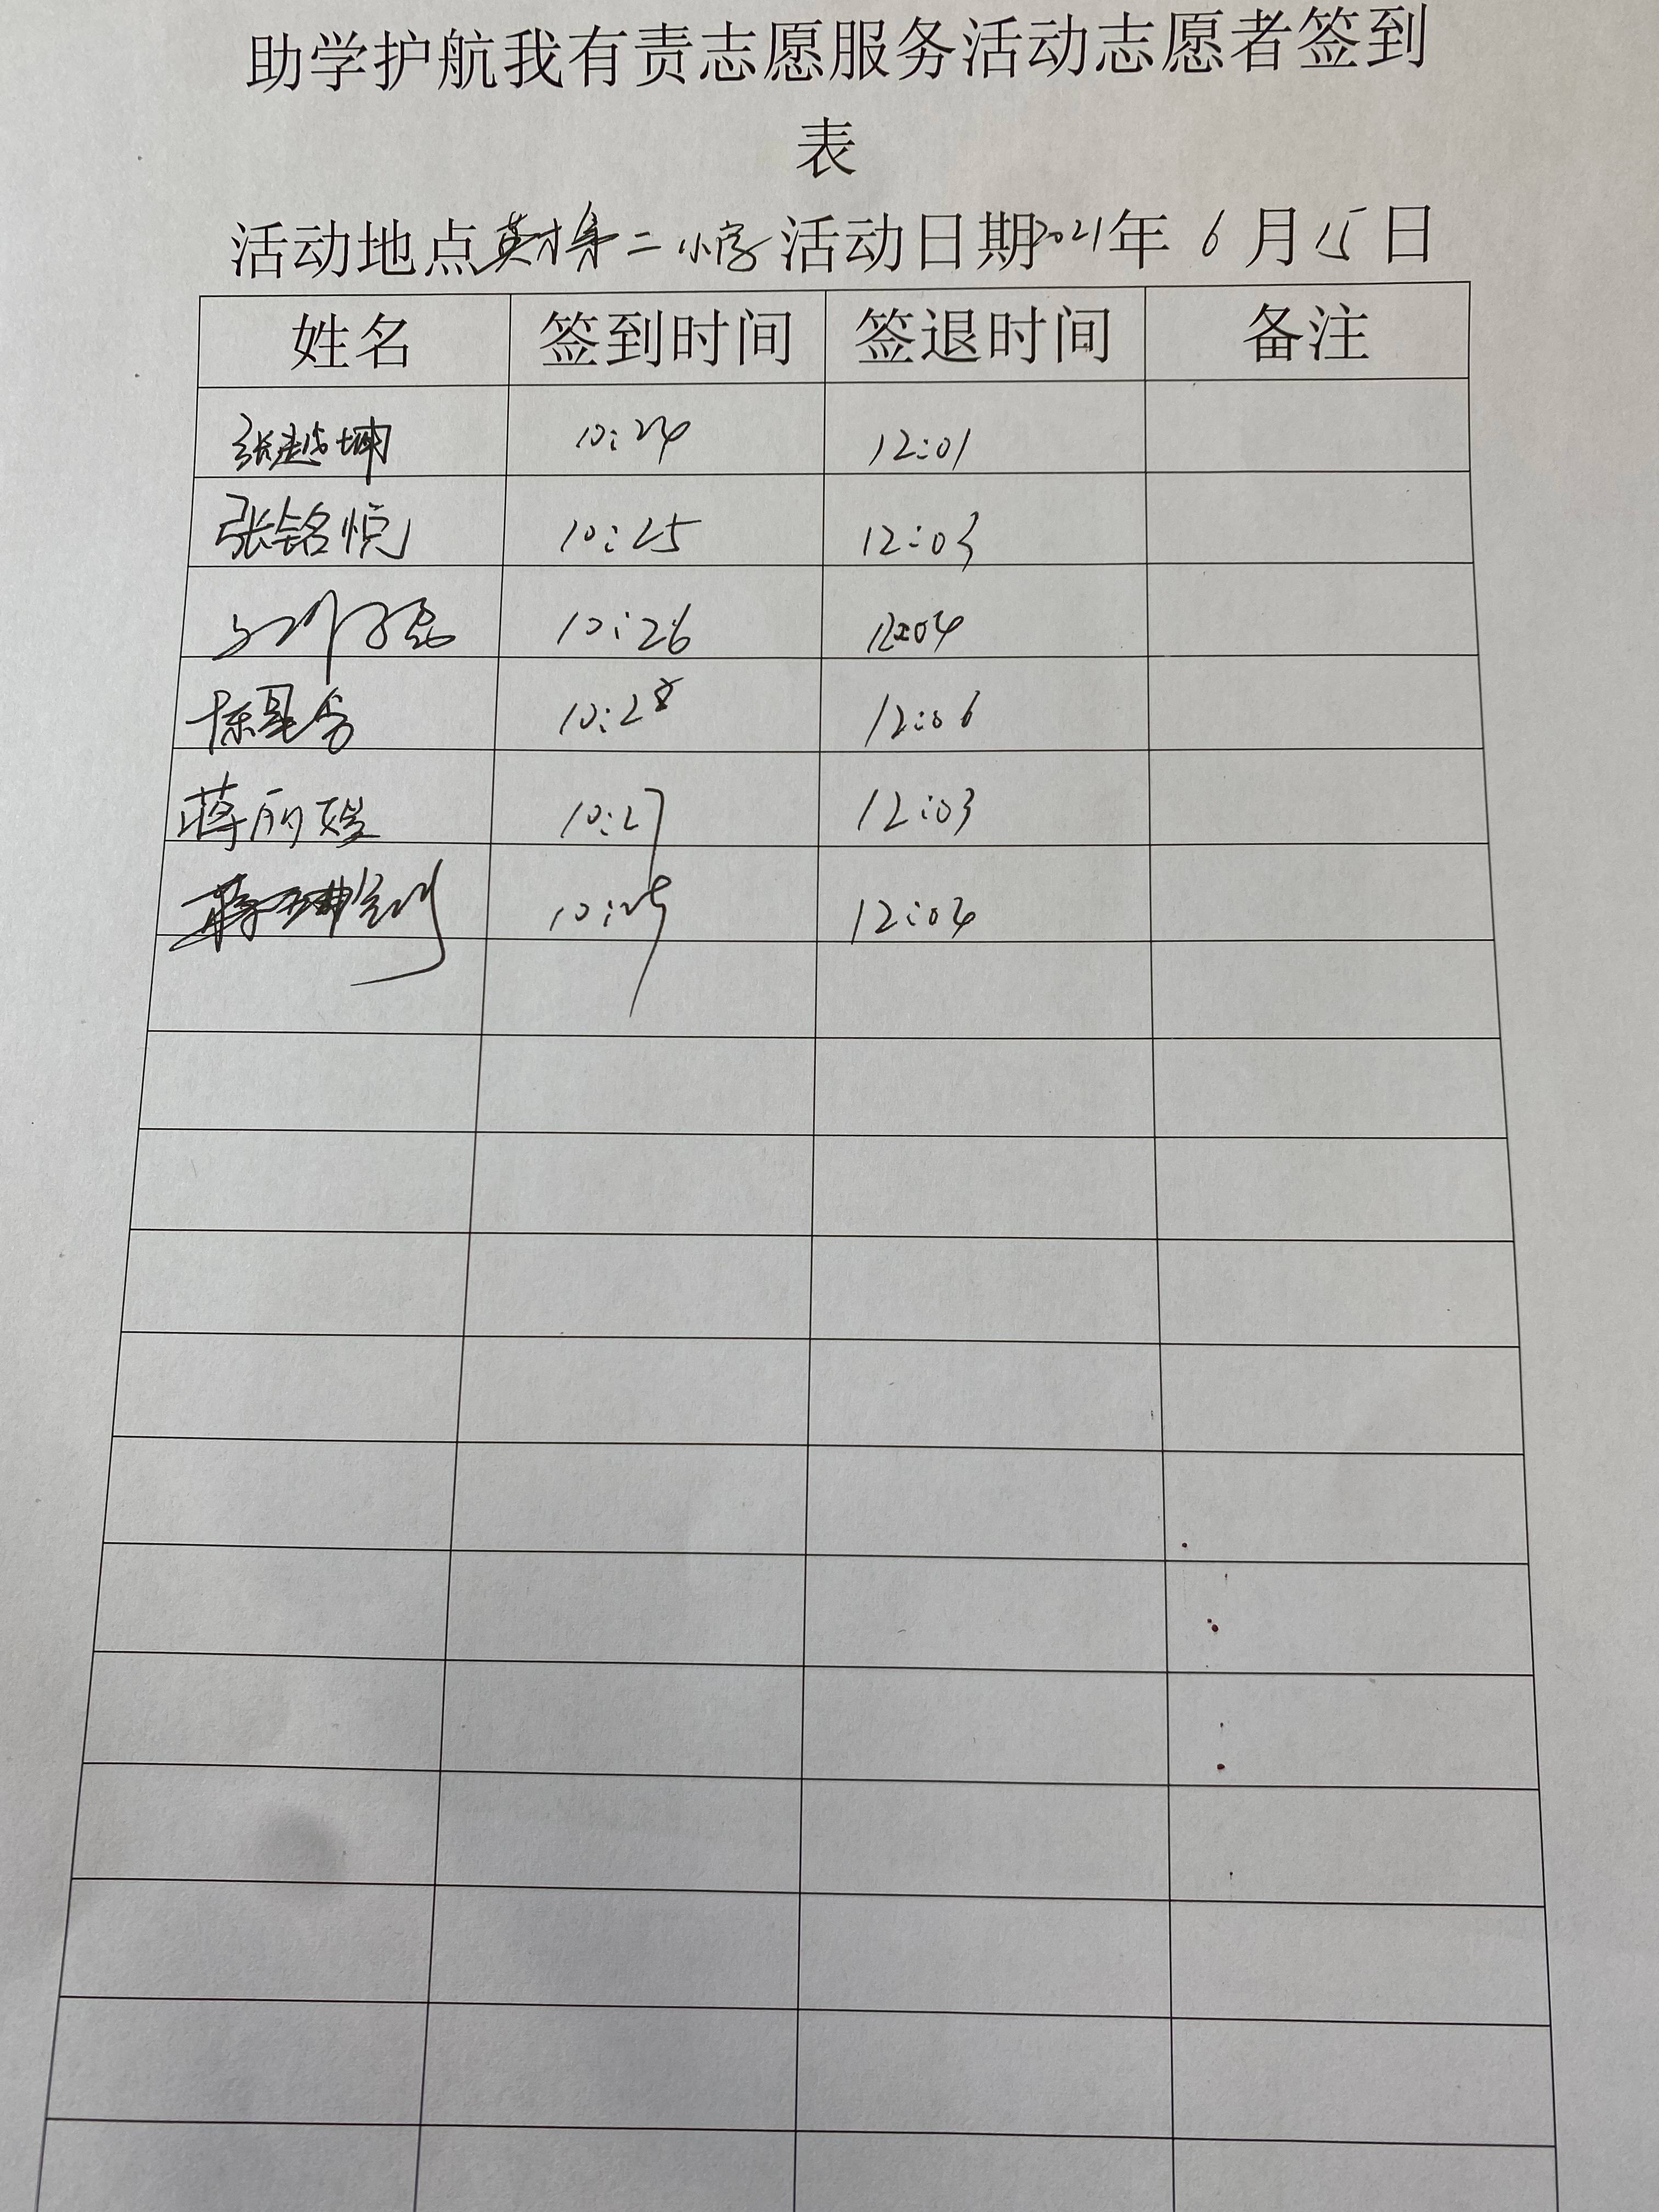 助学护航我有责志愿服务活动志愿者签到
表
活动地点英才第二小学 活动日期2021年 6 月 15 日
姓名 签到时间 签退时间 备注
张越坤 10:24 12:01
张铭悦 10:25 12:03
10:26 12:04
陈星 10:28 12:06
蒋 10:27 12:03
蒋 12:04